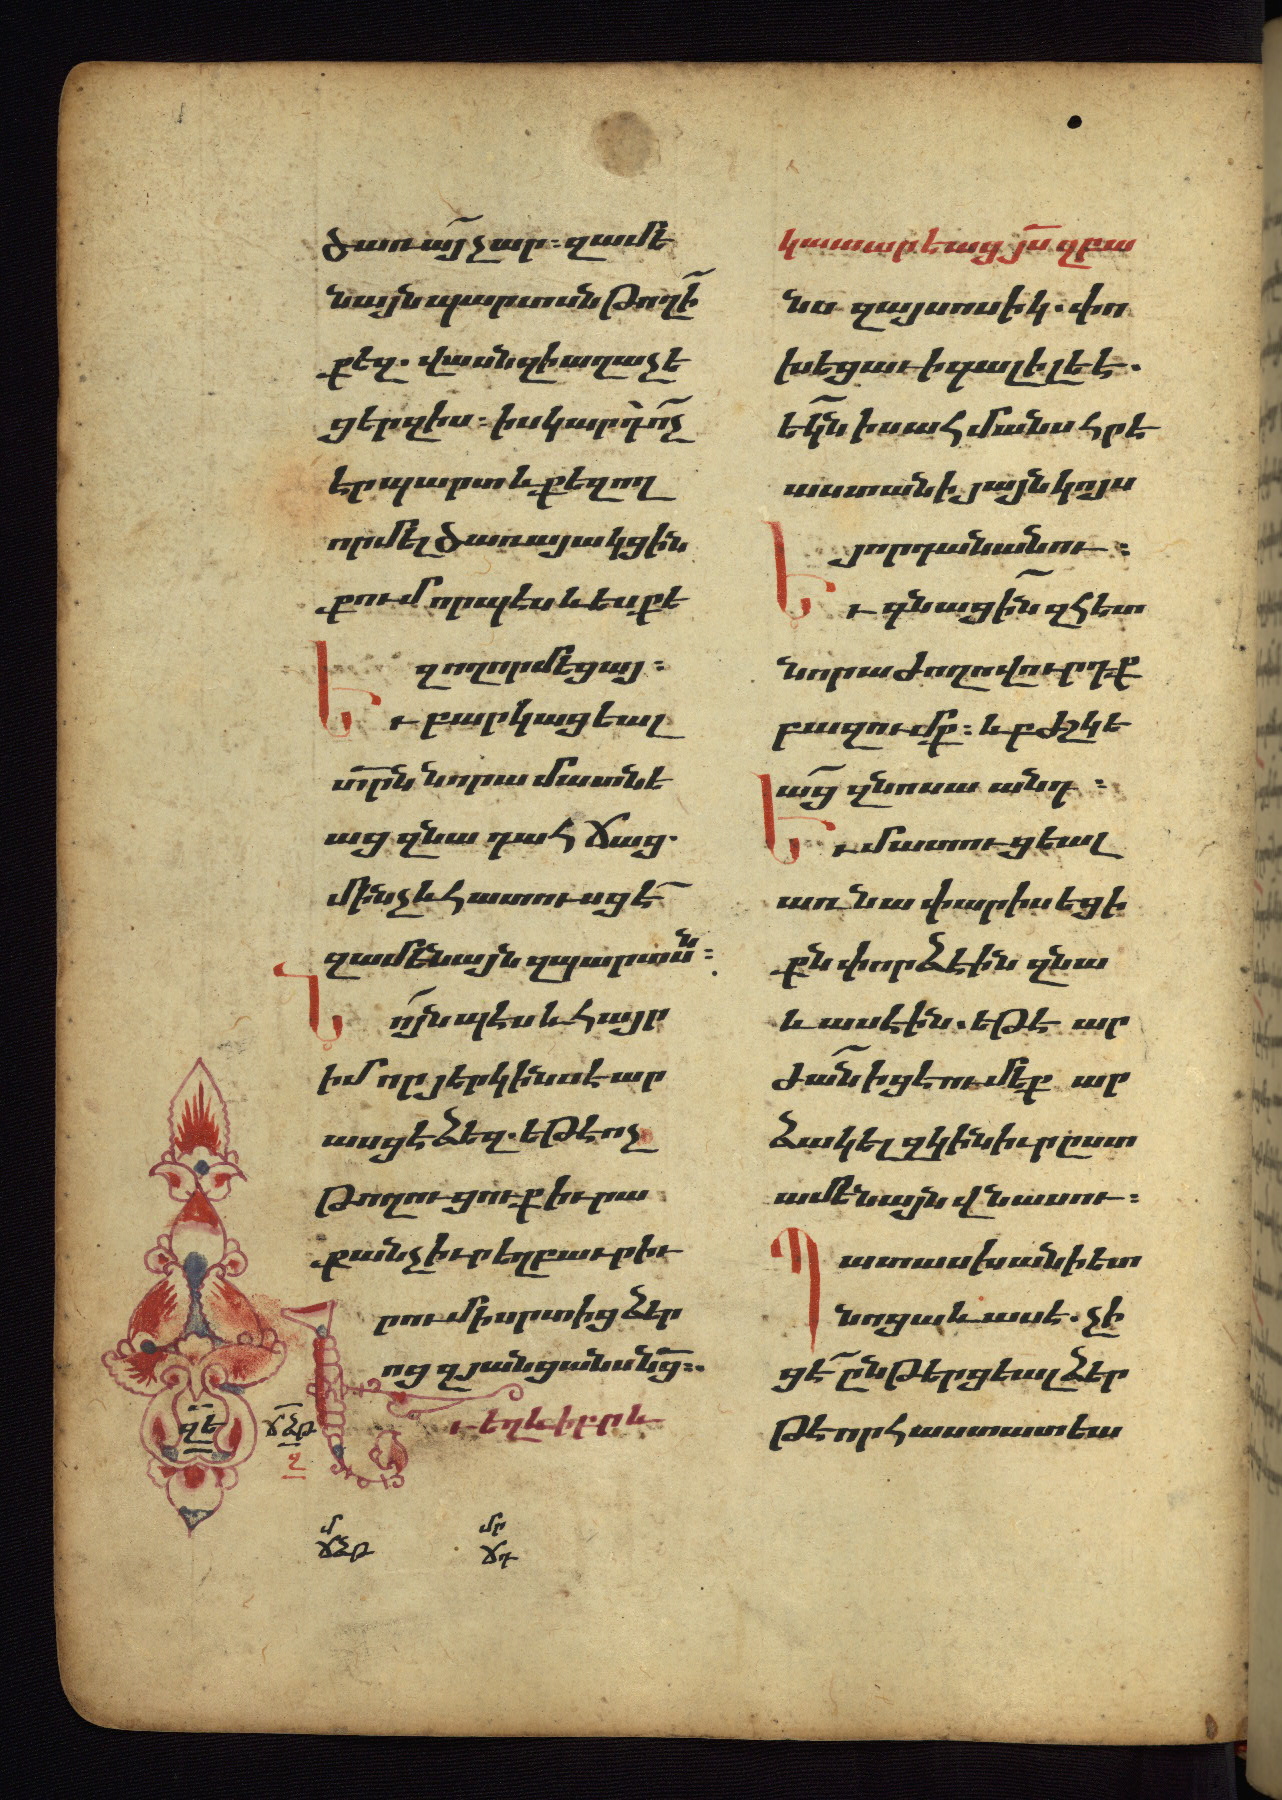 ծառայ չար։ զամե
նայն պարտսն թողի
քեզ. վասն զի աղաչե
ցեր զիս։ իսկ արդ ոչ
էր պարտ և քեզ ող
որմել ծառայակցին
քում որպէս և ես քե
զ ողորմեցայ։
Եւ բարկացեալ
տրն նորա մատնե
աց զնա դահճաց.
մինչև հատուսցէ
զամենայն զպարտսն։
Նոյնպէս և հայր
իմ որ յերկինս է ար
ասցէ ձեզ. եթէ ոչ
թողուցուք իւրա
քանչիւր եղբաւր իւ
րում ի սրտից ձեր
ոց զյանցանս նց։
Եւ եղև իբրև
զե
ճձթ
մ
ճձթ
մր
ճդ
կատարեաց յս զբա
նս զայսոսիկ. փո
խեցաւ ի գալիլեէ.
եկն ի սահմանս հրէ
աստանի յայնկոյս
յորդանանու։
Եւ գնացին զհետ
նորա ժողովուրդք
բազումք։ և բժշկե
աց զնոսա անդ։
Եւ մատուցեալ
առ նա փարիսեցի
քն փորձէին զնա
և ասէին. եթէ ար
ժան իցէ ումեք ար
ձակել զկին իւր ըստ
ամենայն վնասու։
Պատասխանի ետ
նոցա և ասէ. չի
ցէ ընթերցեալ ձեր
թէ որ հաստատեա